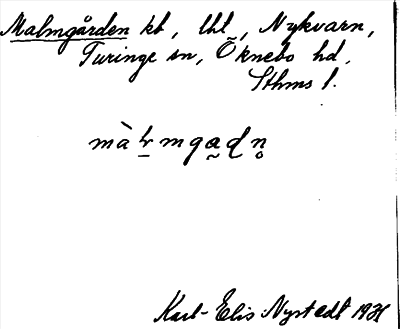 Malmgården kb, lht, Nykvarn,
Turinge sn, Öknebo hd,
Sthms l.
màlmgadn
Karl-Elis Nyrstedt 1931